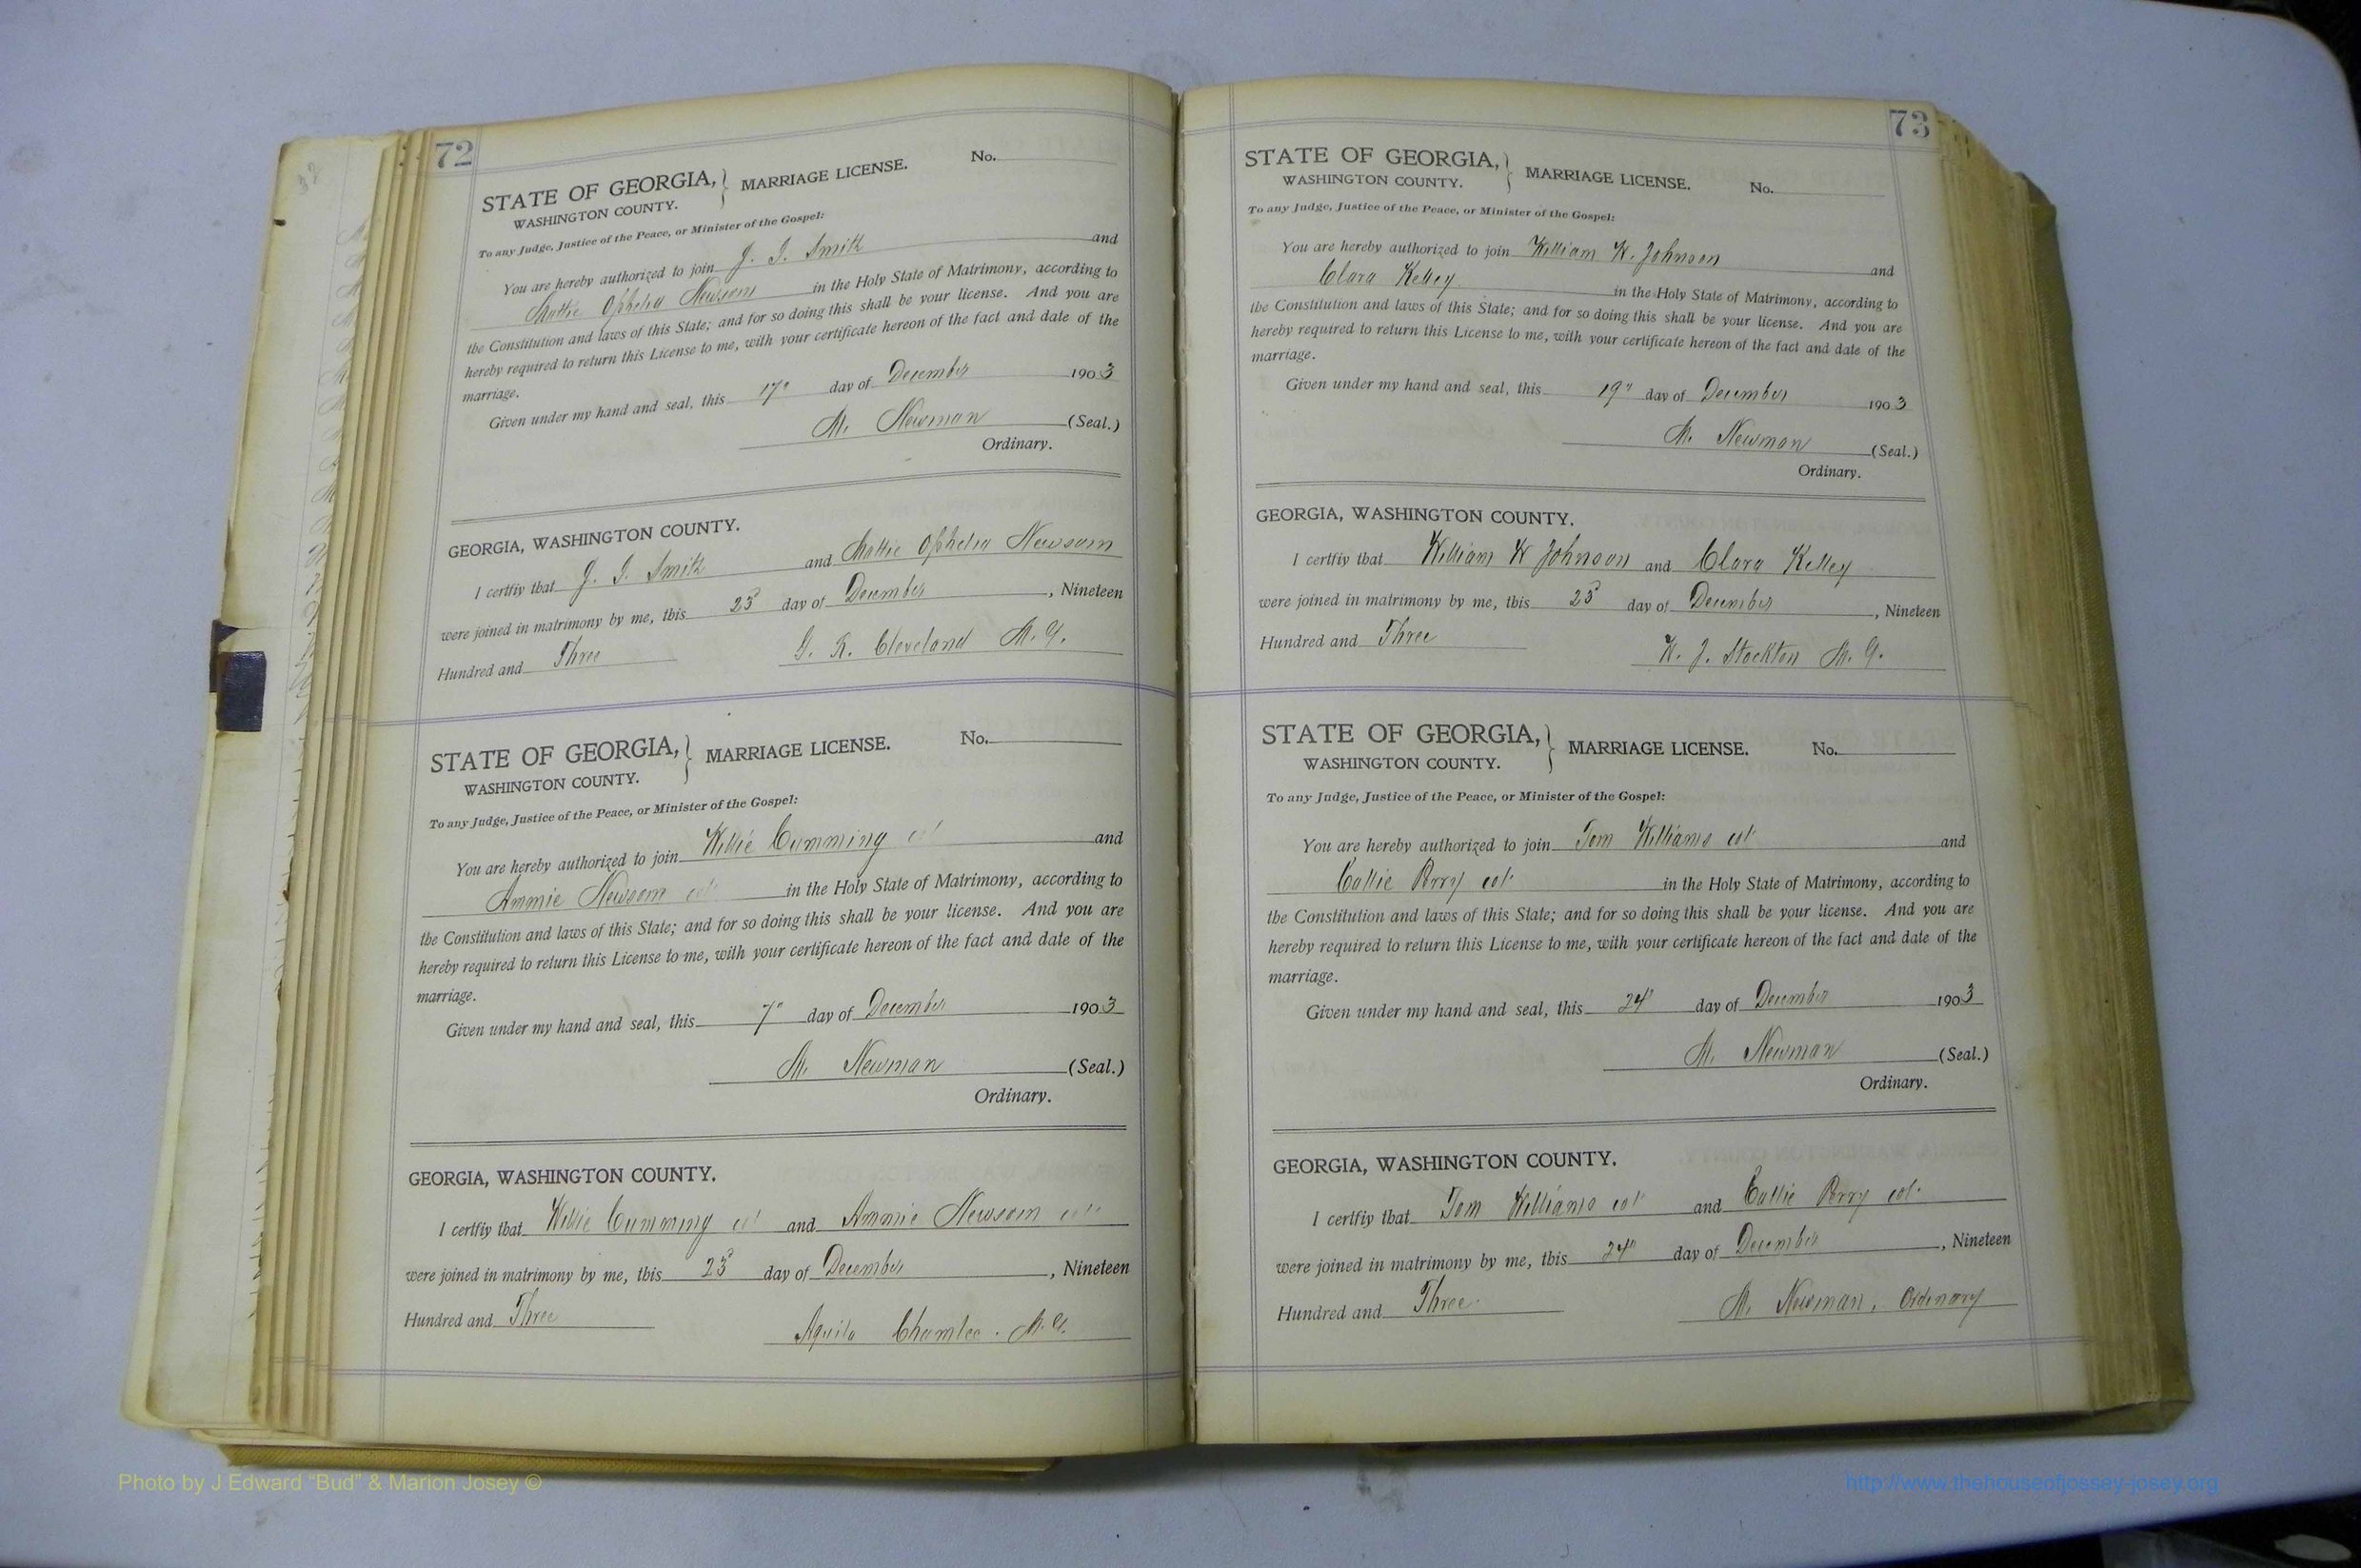 72
STATE OF GEORGIA, } MARRIAGE LICENSE. No.
WASHINGTON COUNTY.
To any Judge, Justice of the Peace, or Minister of the Gospel:
You are hereby authorized to join J. I. Smith and
Mattie Ophelia Newsom in the Holy State of Matrimony, according to
the Constitution and laws of this State; and for so doing this shall be your license. And you are
hereby required to return this License to me, with your certificate hereon of the fact and date of the
marriage.
Given under my hand and seal, this 17" day of December 1903
M. Newman (Seal.)
Ordinary.
GEORGIA, WASHINGTON COUNTY.
I certfiy that J. I. Smith and Mattie Ophelia Newsom
were joined in matrimony by me, this 23 day of December, Nineteen
Hundred and Three G. R. Cleveland M. G.
STATE OF GEORGIA, } MARRIAGE LICENSE. No.
WASHINGTON COUNTY.
To any Judge, Justice of the Peace, or Minister of the Gospel:
You are hereby authorized to join Willie Cumming col and
Ammie Newsom col in the Holy State of Matrimony, according to
the Constitution and laws of this State; and for so doing this shall be your license. And you are
hereby required to return this License to me, with your certificate hereon of the fact and date of the
marriage.
Given under my hand and seal, this 7" day of December 1903
M. Newman (Seal.)
Ordinary.
GEORGIA, WASHINGTON COUNTY.
I certfiy that Willie Cumming col and Ammie Newsom col
were joined in matrimony by me, this 23 day of December, Nineteen
Hundred and Three Aquila Chamlee. M. G.
73
STATE OF GEORGIA, } MARRIAGE LICENSE. No.
WASHINGTON COUNTY.
To any Judge, Justice of the Peace, or Minister of the Gospel:
You are hereby authorized to join William W. Johnson and
Clara Kelley in the Holy State of Matrimony, according to
the Constitution and laws of this State; and for so doing this shall be your license. And you are
hereby required to return this License to me, with your certificate hereon of the fact and date of the
marriage.
Given under my hand and seal, this 19" day of December 1903
M. Newman (Seal.)
Ordinary.
GEORGIA, WASHINGTON COUNTY.
I certfiy that William W Johnson and Clara Kelley
were joined in matrimony by me, this 23 day of December, Nineteen
Hundred and Three W. J. Stockton M. G.
STATE OF GEORGIA, } MARRIAGE LICENSE. No.
WASHINGTON COUNTY.
To any Judge, Justice of the Peace, or Minister of the Gospel:
You are hereby authorized to join Tom Williams col and
Callie Perry col in the Holy State of Matrimony, according to
the Constitution and laws of this State; and for so doing this shall be your license. And you are
hereby required to return this License to me, with your certificate hereon of the fact and date of the
marriage.
Given under my hand and seal, this 24" day of December 1903
M. Newman (Seal.)
Ordinary.
GEORGIA, WASHINGTON COUNTY.
I certfiy that Tom Williams col and Callie Perry col
were joined in matrimony by me, this 24" day of December, Nineteen
Hundred and Three M. Newman, Ordinary
Photo by J Edward “Bud” & Marion Josey ©
http://www.thehouseofjossey-josey.org